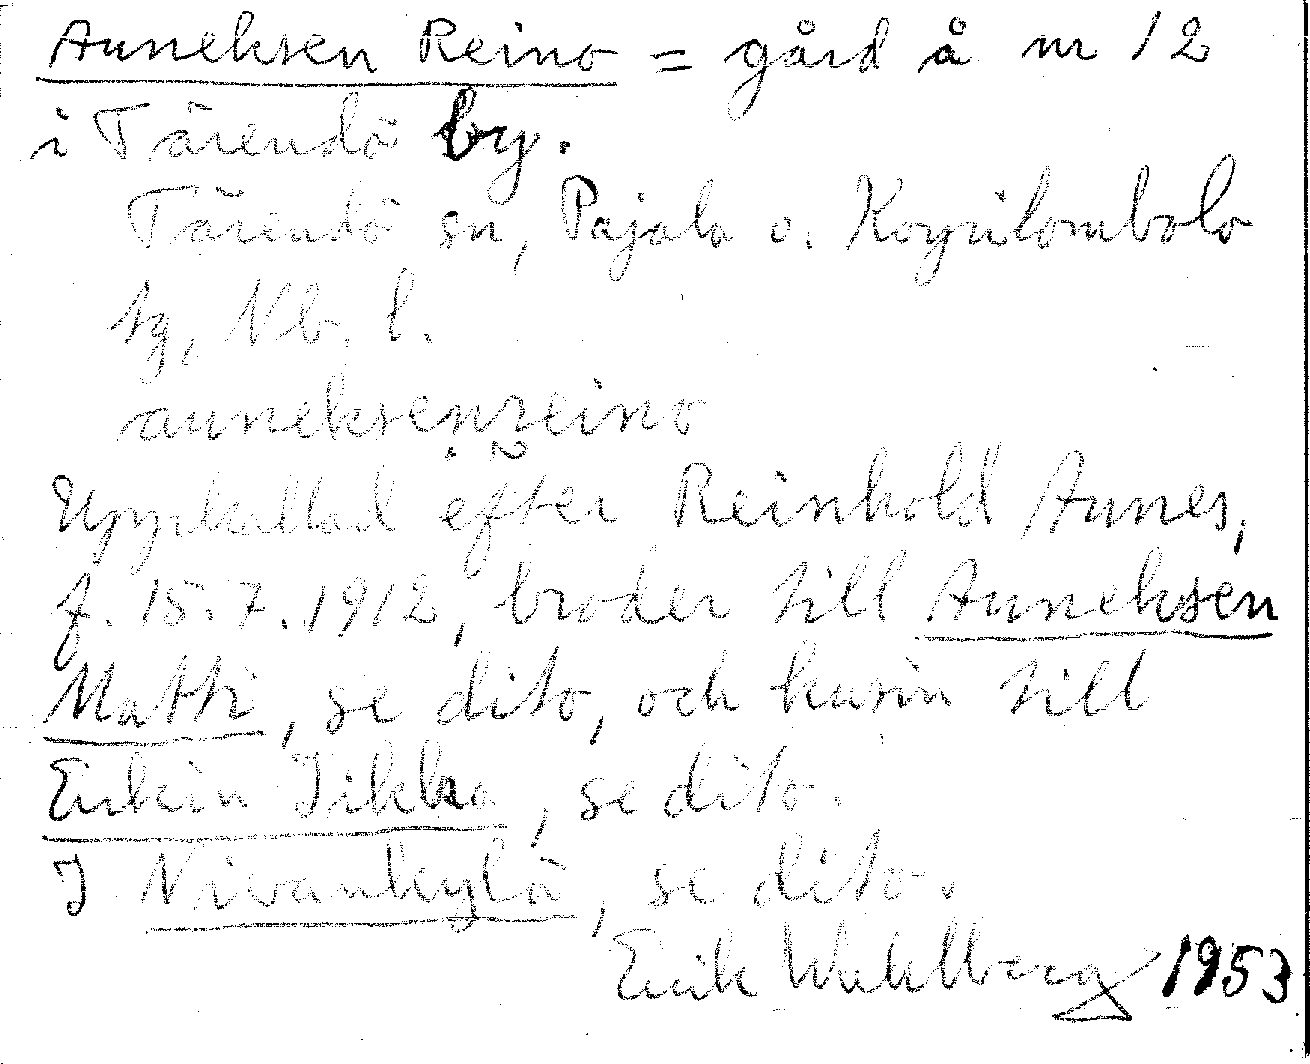 Anneksen Reino = gård å nr 12
i Tärendö by.
Tärendö sn, Pajala o. Korpilombolo
tg, Nb. l.
anneksenreino
Uppkallad efter Reinhold Annes,
f. 15.7.1912, broder till Anneksen
Matti, se dito, och kusin till
Erkin Iikka, se dito.
I Nivankylä, se dito.
Erik Wahlberg 1953